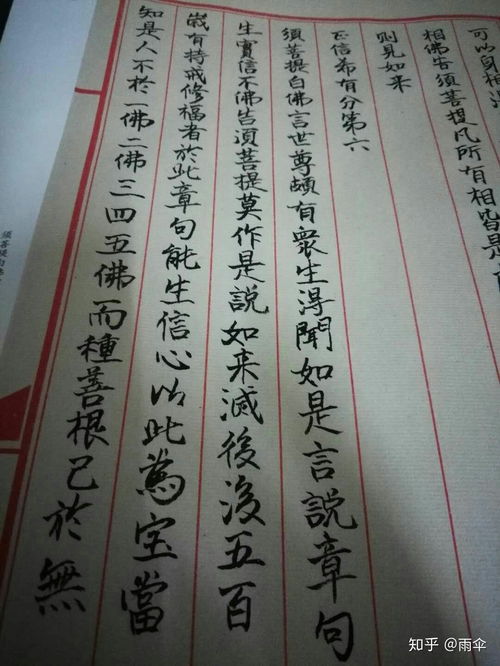 可以身相
相佛告須菩提凡所有相皆是
則見如来
正信希有分第六
須菩提白佛言世尊頗有衆生得聞如是言說章句
生實信不佛告須菩提莫作是說如来滅後後五百
歲有持戒修福者於此章句能生信心以此為实當
知是人不於一佛二佛三四五佛而種善根已於無
知乎 @雨伞